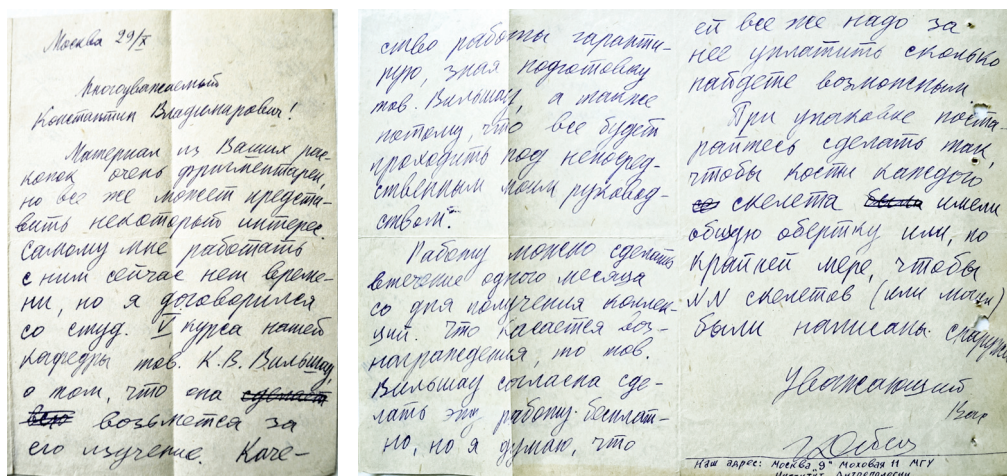 Москва 29/X
Многоуважаемый
Константин Владимирович!
Материал из Ваших рас-
копок очень фрагментарен,
но все же может предста-
вить некоторый интерес.
Самому мне работать
с ним сейчас нет време-
ни, но я договорился
со студ. V курса нашей
кафедры тов. К.В. Вильшау,
о том, что она сделает
возьмется за
его изучение. Каче-
ство работы гаранти-
рую, зная подготовку
тов. Вильшау, а также
потому, что все будет
проходить под непосред-
ственным моим руковод-
ством.
Работу можно сделать
втечение одного месяца
со дня получения коллек-
ций. Что касается воз-
награждения, то тов.
Вильшау согласна сде-
лать эту работу бесплат-
но, но я думаю, что
ей все же надо за
нее уплатить сколько
найдете возможным.
При упаковке поста
райтесь сделать так,
чтобы кости каждого
скелета были имели
общую обертку или, по
крайней мере, чтобы
NN скелетов (или могил)
были написаны снаружи.
Уважающий
Вас
Г. Дебец
Наш адрес: Москва "9" Моховая 11 МГУ
Институт Антропологии